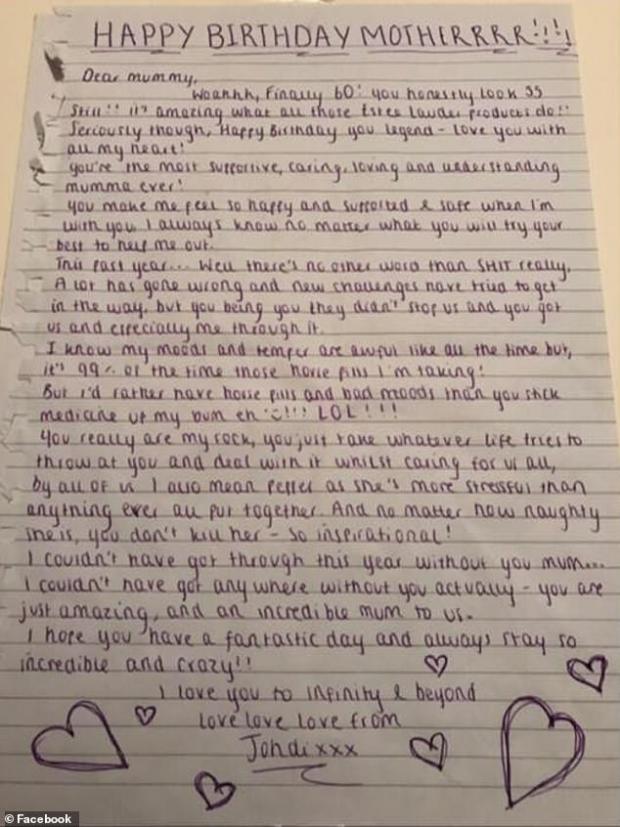 HAPPY BIRTHDAY MOTHERRRR!!!!
Dear mummy,
Woahhh, Finally 60! you honestly look 35
Still!! it's amazing what all those Estee Lauder products do!!
Seriously though, Happy Birthday you legend - love you with
all my heart!
you're the most supportive, caring, loving and understanding
mumma ever!
you make me feel so happy and supported & safe when I'm
with you, I always know no matter what you will try your
best to help me out.
This past year... Well there's no other word than SHIT really,
A lot has gone wrong and new challenges have tried to get
in the way, but you being you they didn't stop us and you got
us and especially me through it.
I know my moods and temper are awful like all the time but,
it's 99% of the time those horse pills I'm taking!
But i'd rather have horse pills and bad moods than you stick
medicine up my bum eh !!! LOL!!!
You really are my rock, you just take whatever life tries to
throw at you and deal with it whilst caring for us all,
by all of us I also mean Pepper as she's more stressful than
anything ever all put together. And no matter how naughty
she is, you don't kill her - so inspirational!
I couldn't have got through this year without you mum...
I couldn't have got any where without you actually - you are
just amazing, and an incredible mum to us.
I hope you have a fantastic day and always stay so
incredible and crazy!!
I love you to infinity & beyond
love love love from
Jondi xxx
Facebook